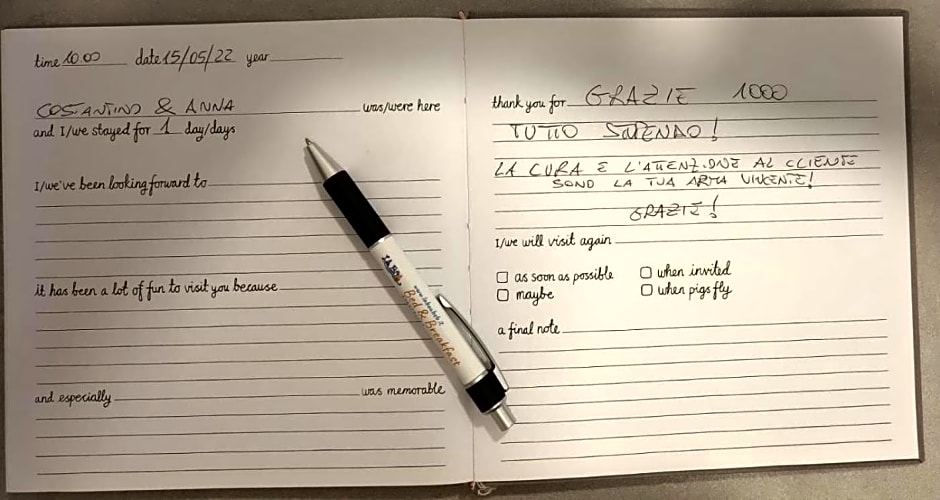 time 10.00 date 15/05/22 year
COSTANTINO & ANNA was/were here
and I/we stayed for 1 day/days
I/we've been looking forward to
it has been a lot of fun to visit you because
and especially was memorable
thank you for GRAZIE 1000
TUTTO STUPENDO!
LA CURA E L'ATTENZIONE AL CLIENTE
SONO LA TUA ARMA VINCENTE!
GRAZIE!
I/we will visit again
as soon as possible when invited
maybe when pigs fly
a final note
Bed & Breakfast